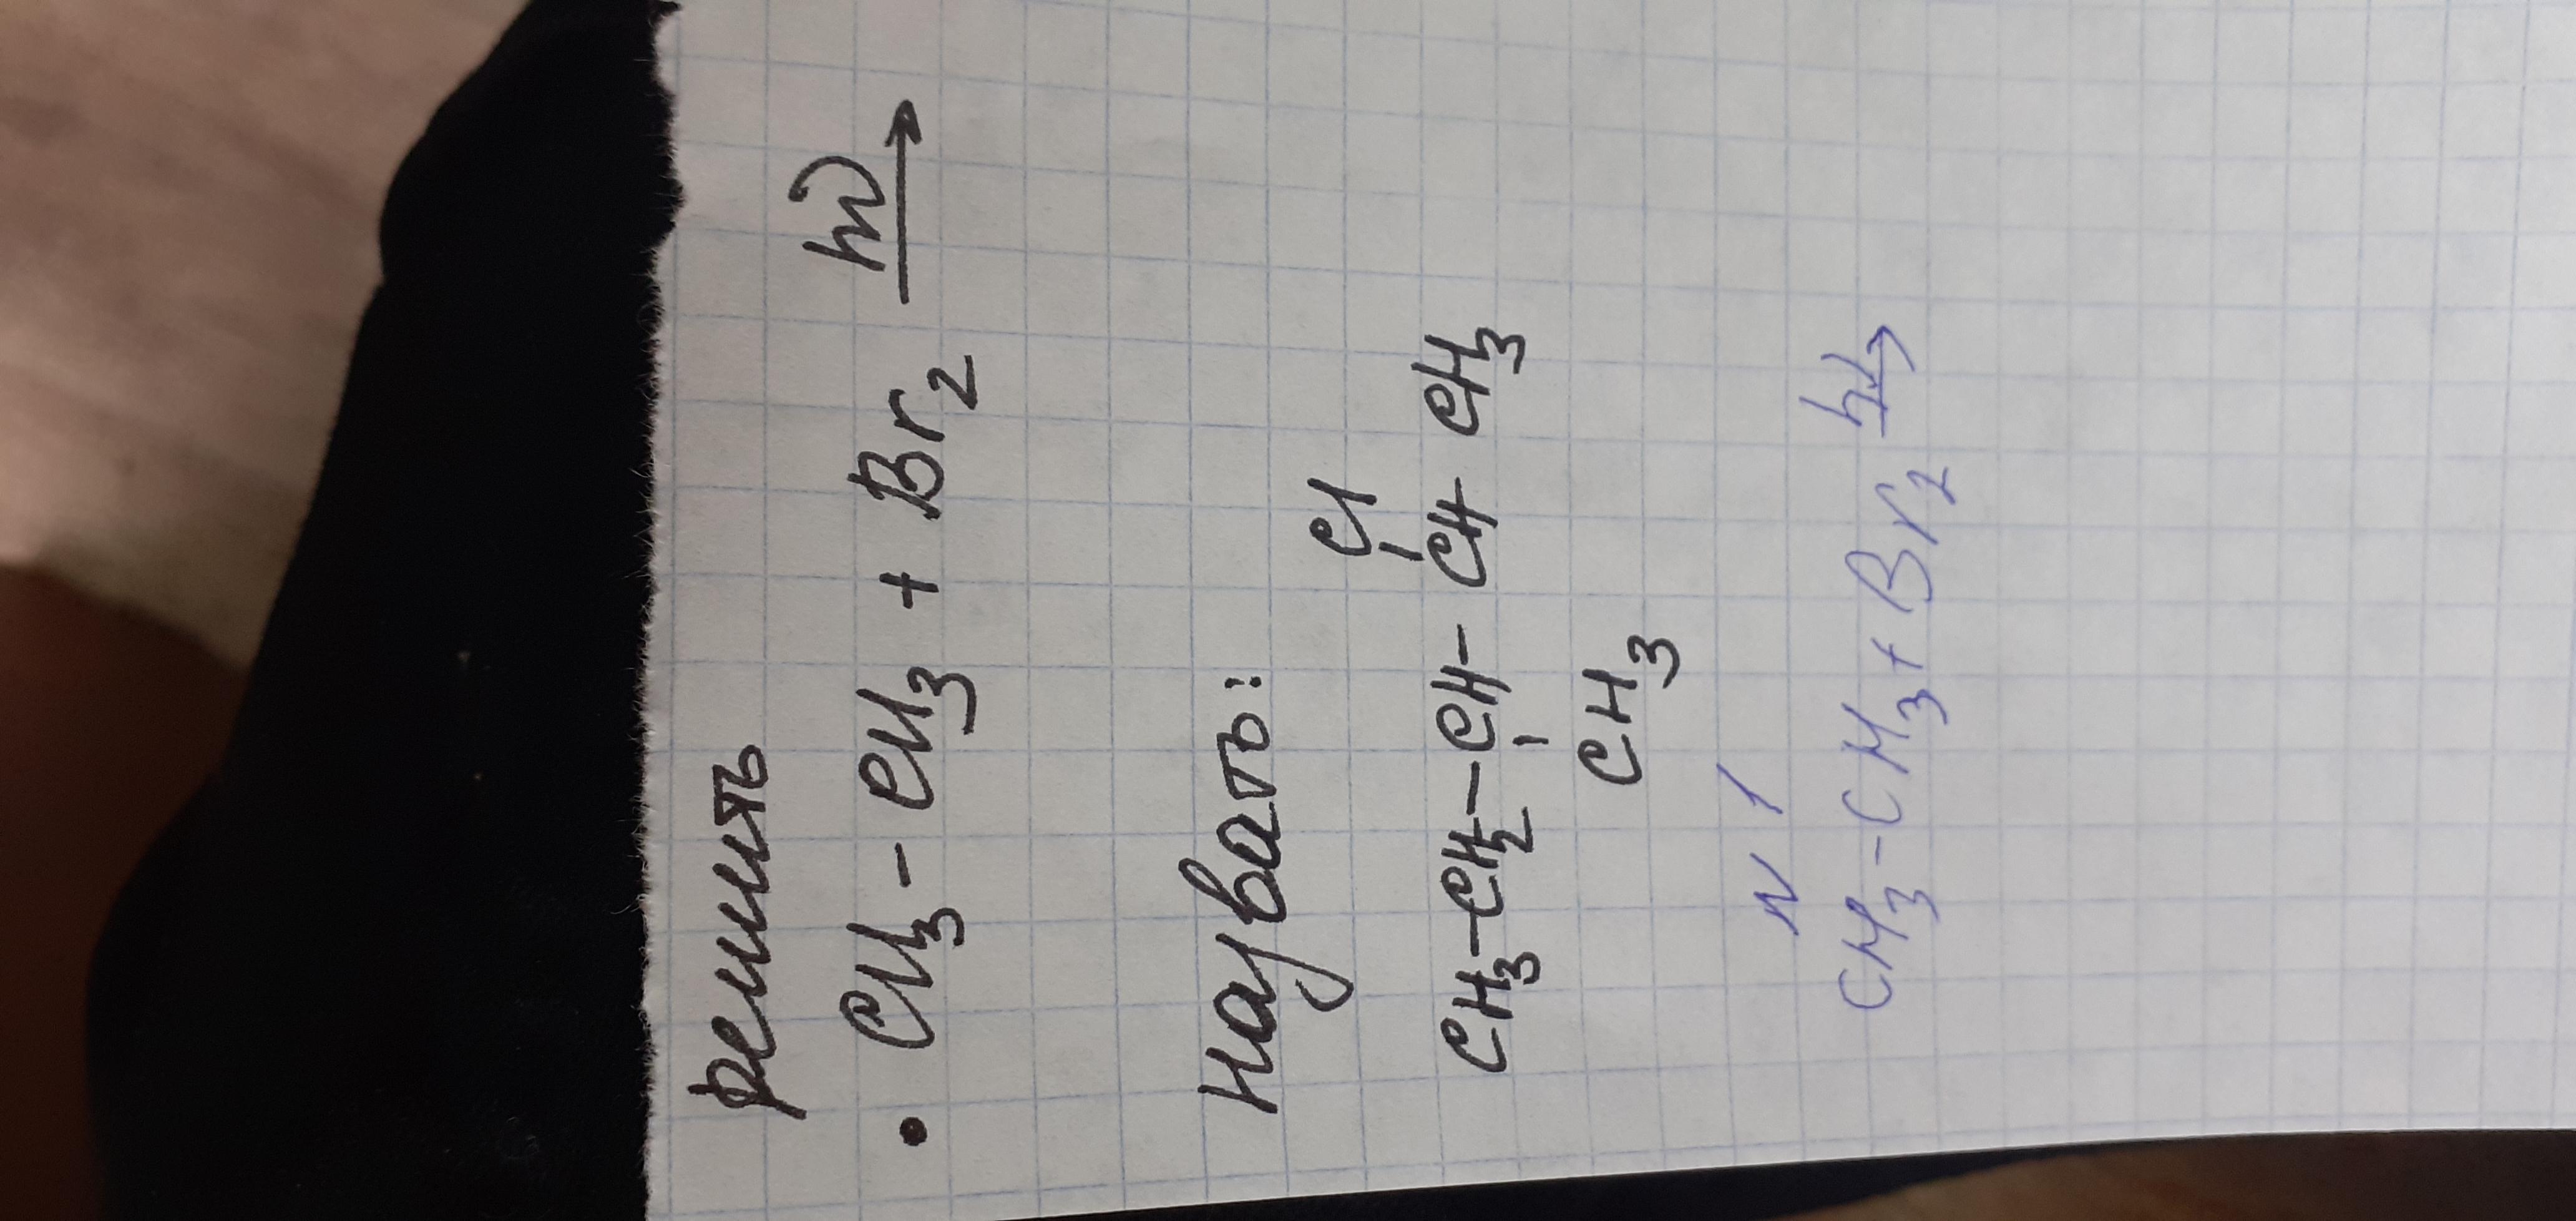 решить
• CH3 - CH3 + Br2 hν →
назвать:
Cl
CH3 - CH2 - CH - CH CH3
CH3
N 1
CH3 - CH3 + Br2 hν →